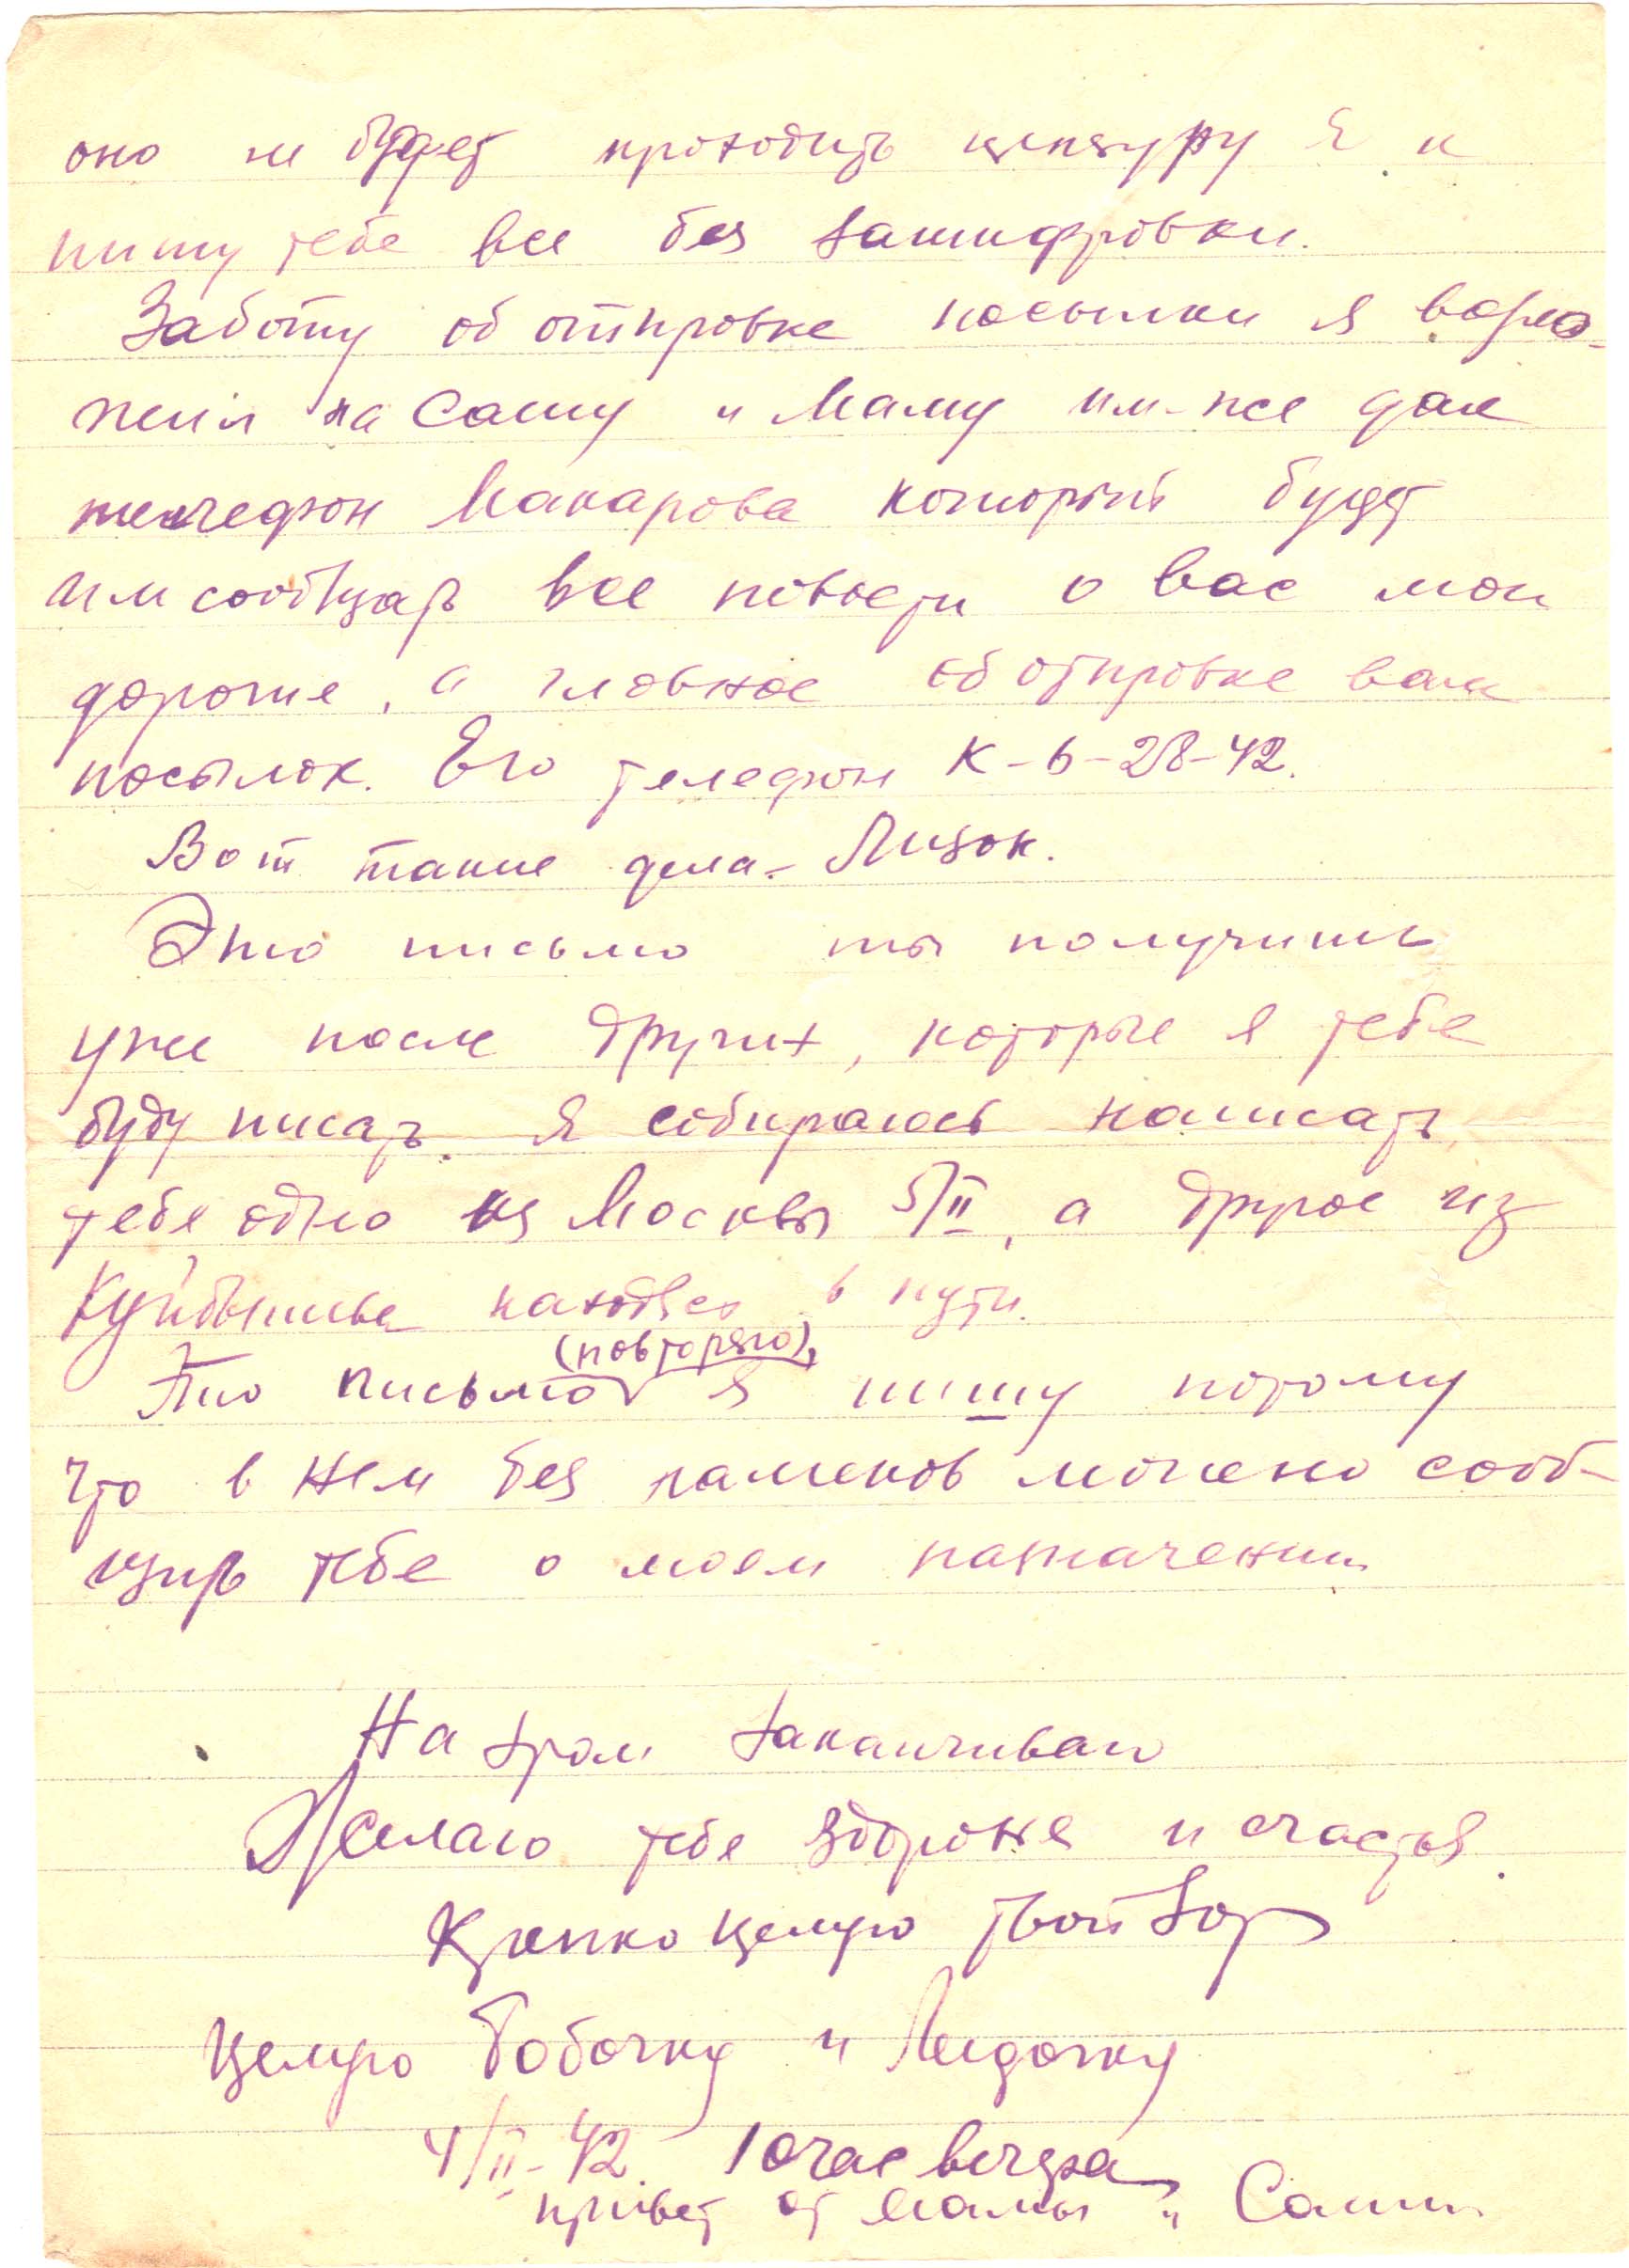 оно не будет проходить цензуру Я и
пишу тебе все без зашифровки.
Заботу об отправке посылки я возло-
жил на Сашу и Маму им-же дал
телефон Макарова который будет
им сообщать все новости о вас мои
дорогие, а главное об отправке вам
посылок. Его телефон К-6-28-42.
Вот такие дела - Лизок.
Это письмо ты получишь
уже после других, которые я тебе
буду писать. Я собираюсь написать
тебе одно из Москвы 5/II, а другое из
Куйбышева находясь в пути.
(повторяю),
Это письмо я пишу потому
что в нем без намеков можно сооб-
щить тебе о моем назначении
На этом заканчиваю
Желаю тебе здоровья и счастья.
Крепко целую твой Бор
Целую Бобочку и Лидочку
4/II-42. 10 час вечера
привет от Мамы и Саши